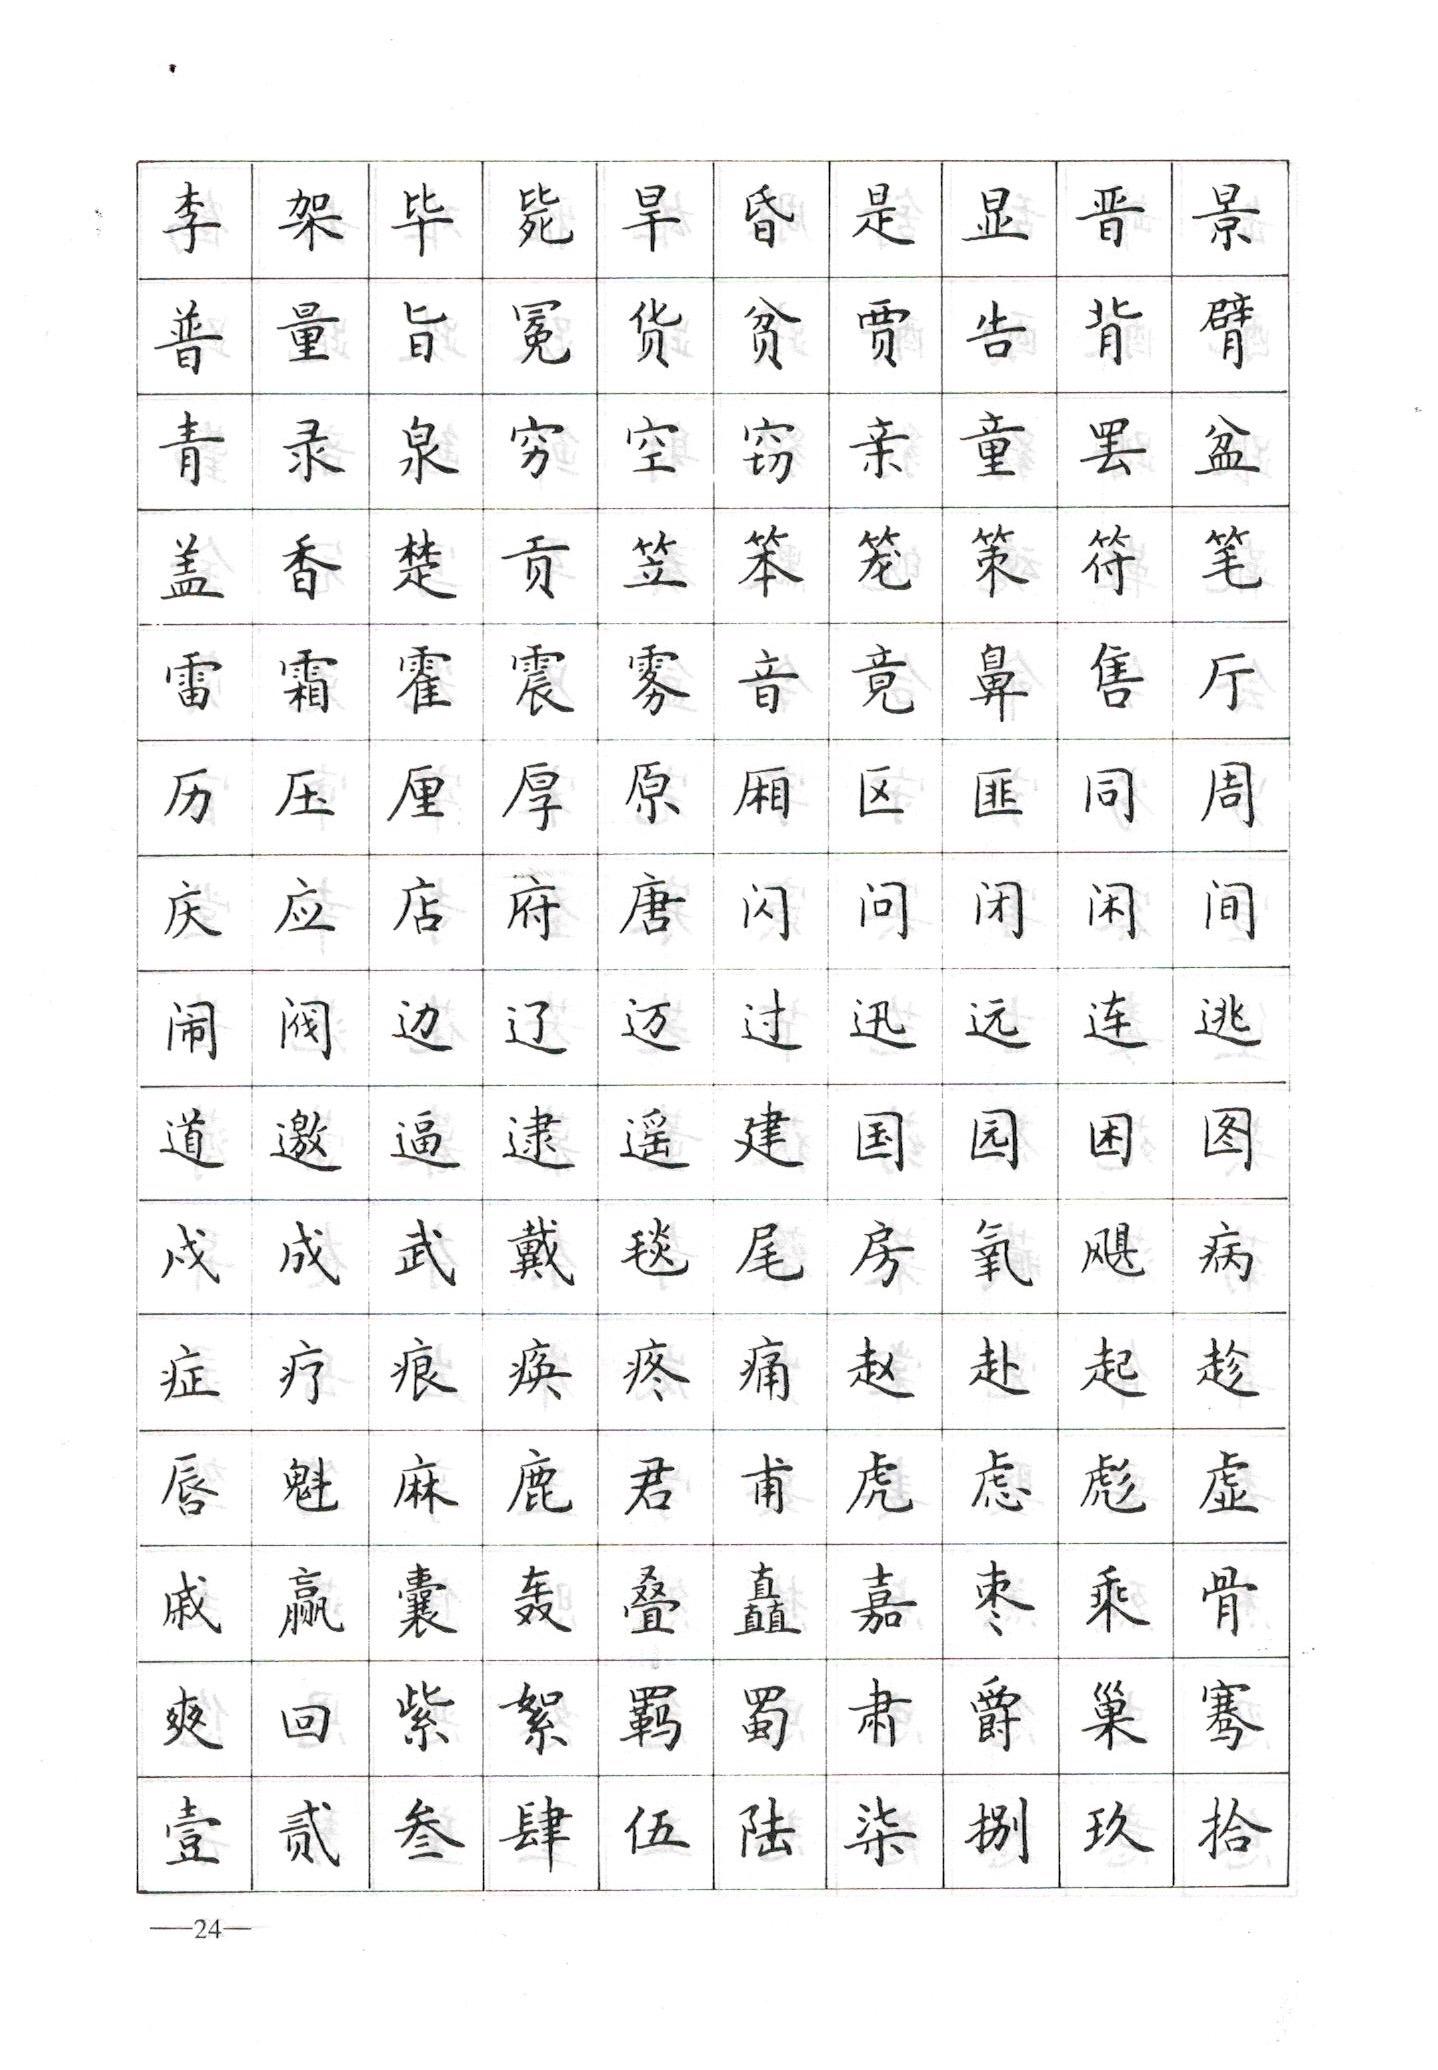 李架毕毙旱昏是显晋景
普量旨冕货贫贾告背臂
青录泉穷空窃亲童罢盆
盖香楚贡笠笨笼策符笔
雷霜霍震雾音竟鼻售厅
历压厘厚原厢区匪同周
庆应店府唐闪问闭闲间
闹阀边辽迈过迅远连逃
道邀逼逮遥建国园困图
戍成武戴毯尾房氧飓病
症疗痕痪疼痛赵赴起趁
唇魁麻鹿君甫虎虑彪虚
戚赢囊轰叠矗嘉枣乘骨
爽回紫絮羁蜀肃爵巢骞
壹贰叁肆伍陆柒捌玖拾
—24—